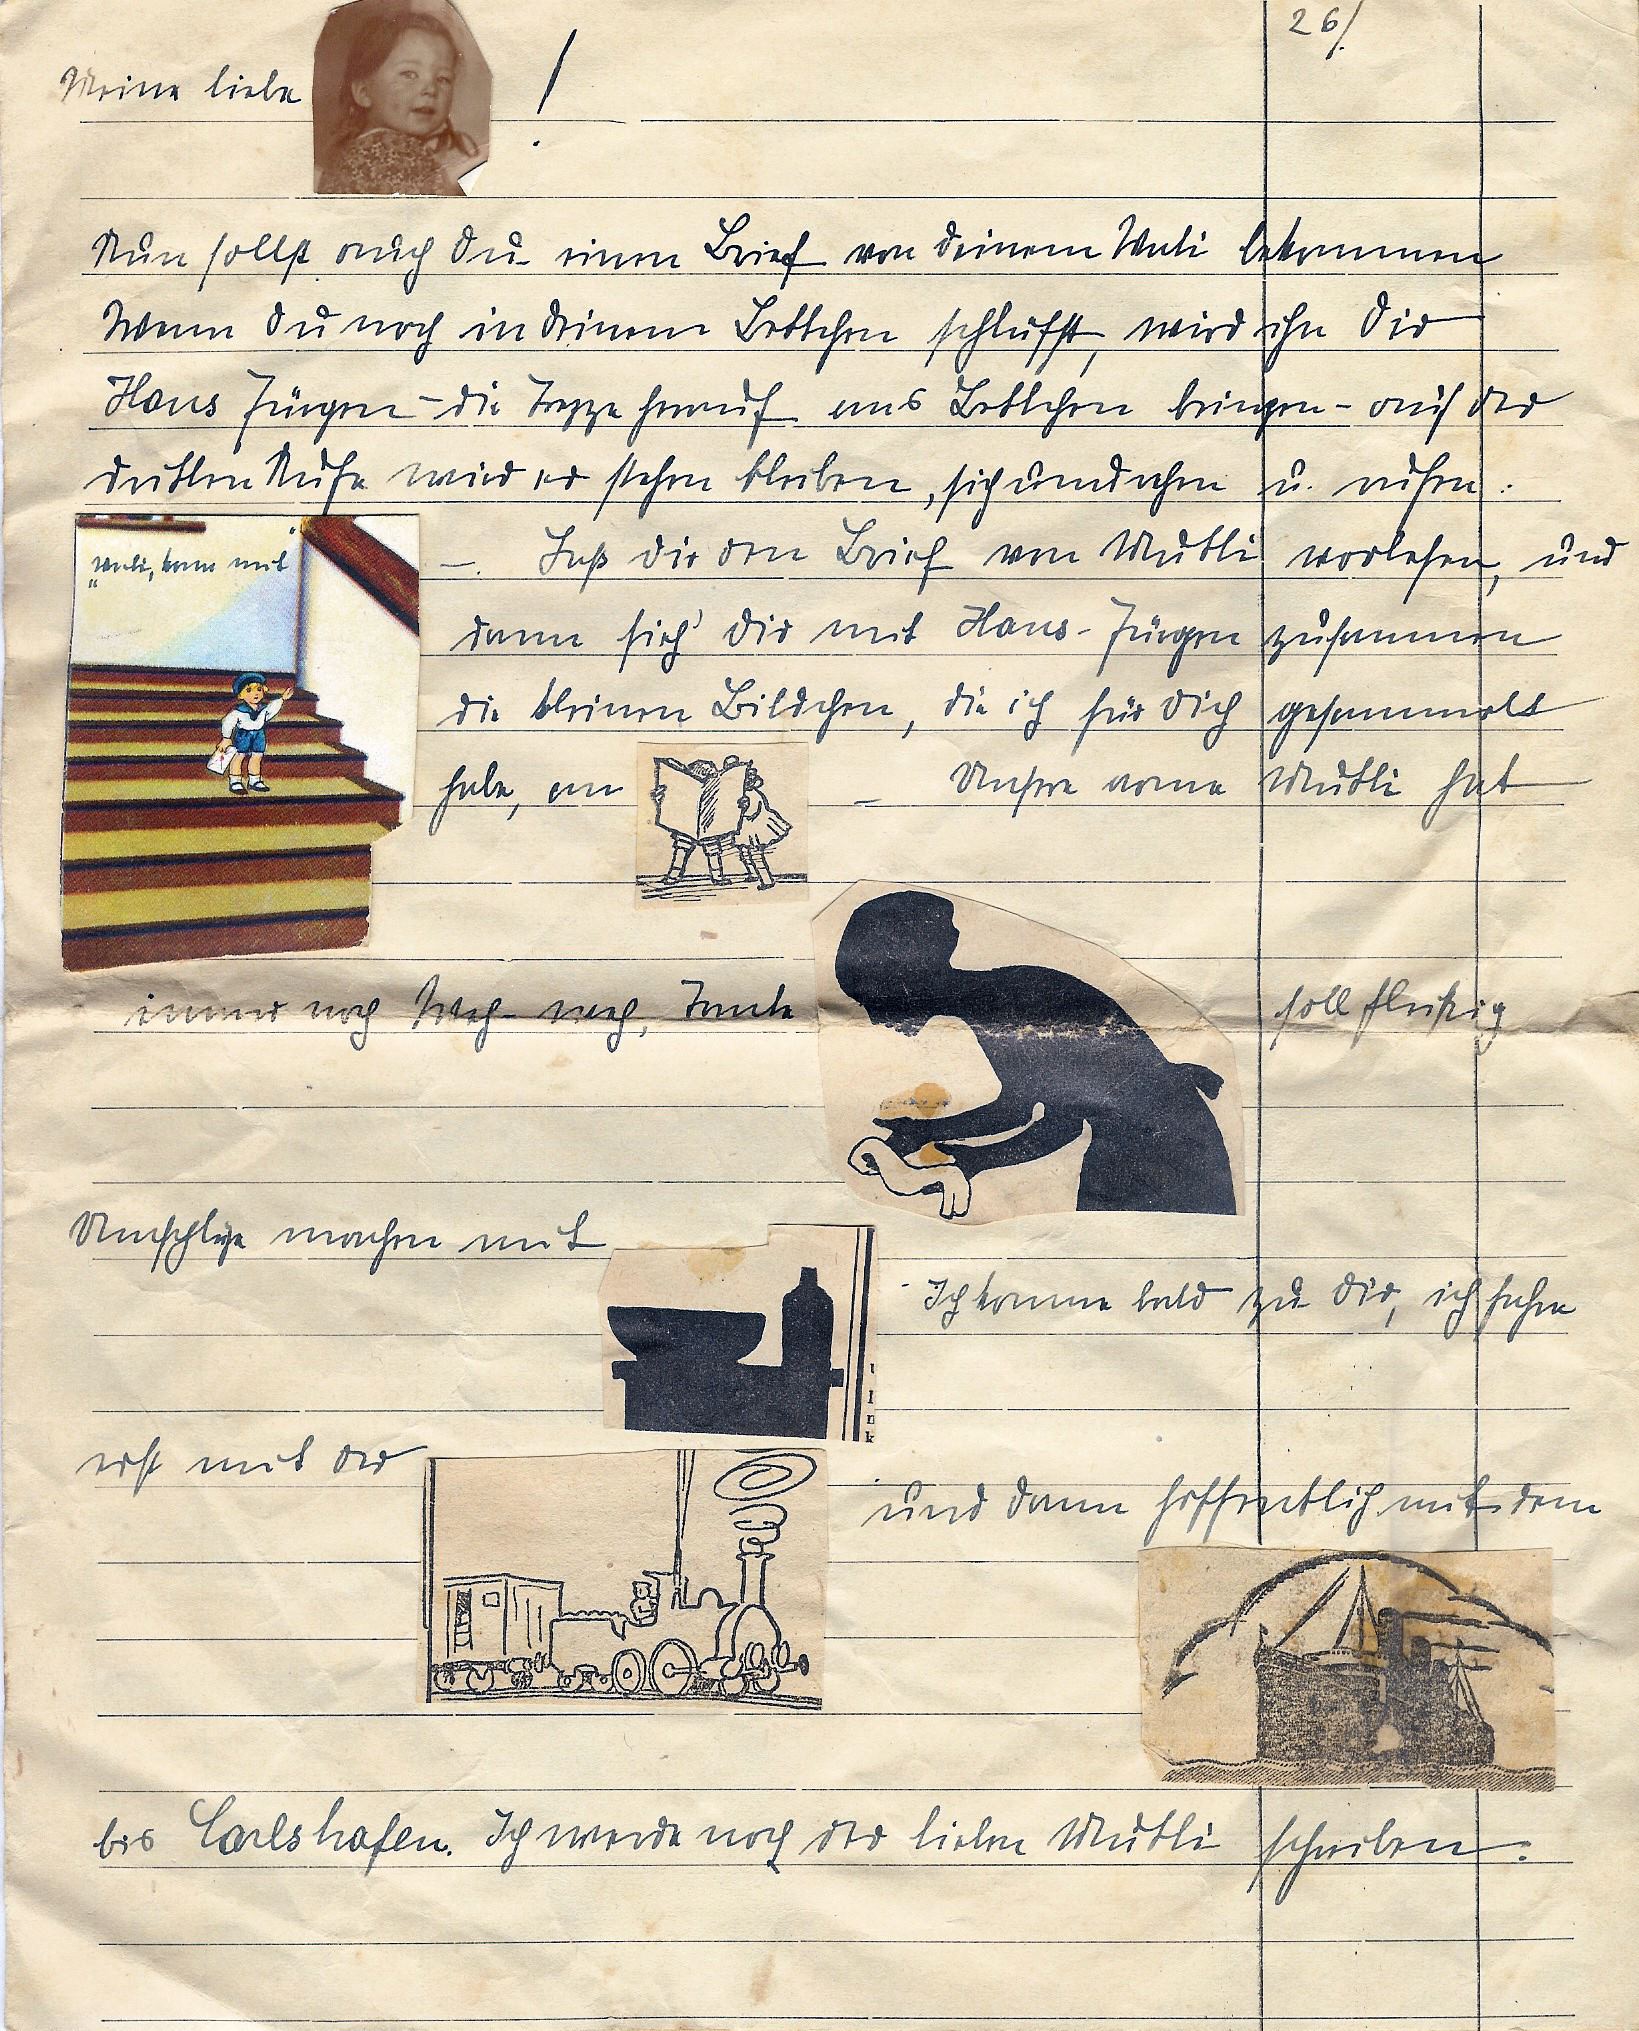 26/
Meine liebe !
Nun sollst auch Du einen Brief von deinem Vati bekommen
Wenn Du noch in deinem Bettchen schläfst, wird ihn Dir
Hans Jürgen – die Treppe herauf ans Bettchen bringen – auf der
dritten Stufe wird er stehen bleiben, sich umdrehen u. rufen:
"Vati, komm mit"
–. Laß dir den Brief von Mutti vorlesen, und
dann sieh' Dir mit Hans-Jürgen zusammen
die kleinen Bildchen, die ich für Dich gesammelt
habe, an – Unsre arme Mutti hat
immer noch Weh-weh, Tante soll fleißig
Umschläge machen mit
Ich komme bald zu Dir, ich fahre
erst mit der
und dann hoffentlich mit dem
bis Carlshafen. Ich werde noch der lieben Mutti schreiben.